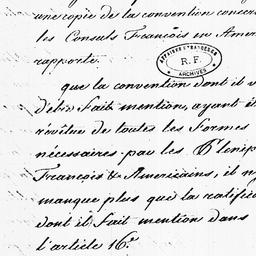 une copie de la convention concern
les Consuls François en Amer
rapporté.
AFFAIRES ETRANGERES
R.F.
ARCHIVES
que la convention dont il v
d'être fait mention, ayant é
revêtue de toutes les formes
nécessaires par les Plenip
François & Américains, il n'y
manque plus que la ratific
dont il fait mention dans
l'article 16.e